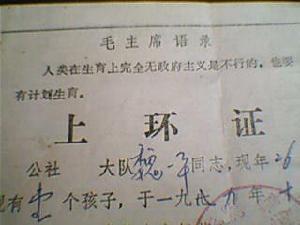 毛主席语录
人类在生育上完全无政府主义是不行的，也要
有计划生育。
上环证
公社 大队 同志，现年26
现有 个孩子，于一九七九年十